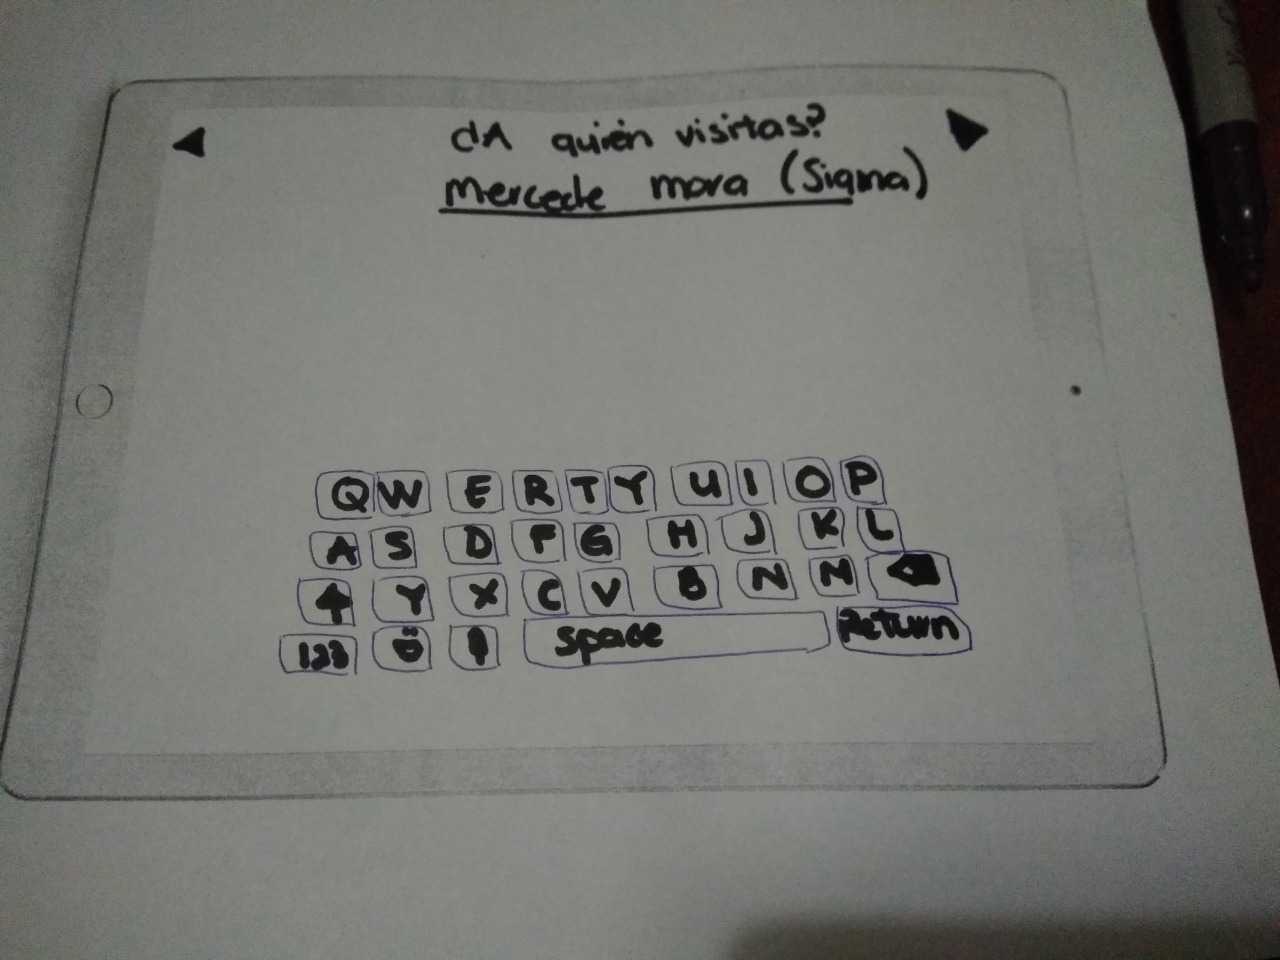 ¿A quién visitas?
Mercede mora (Sigma)
Q W E R T Y U I O P
A S D F G H J K L
Y X C V B N M
123 space Return